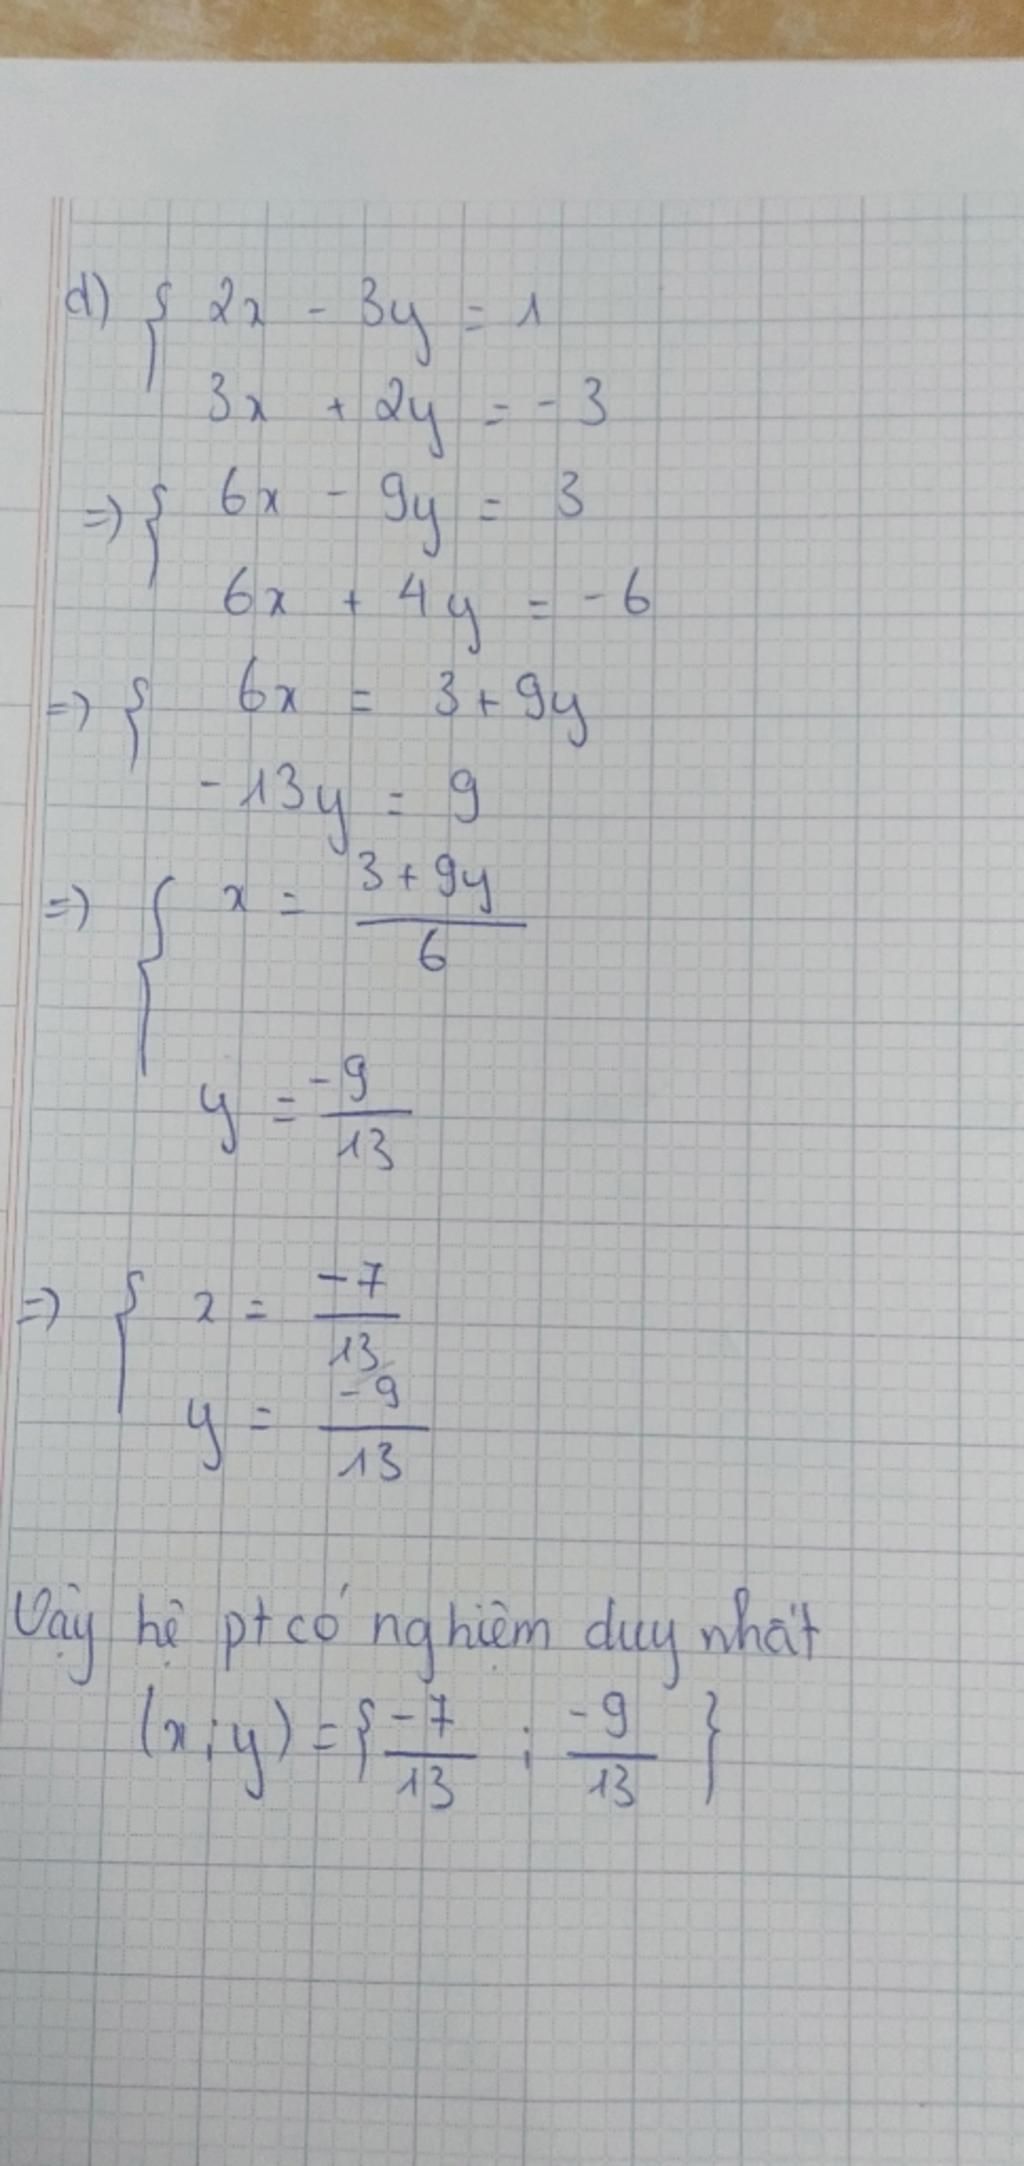 d) { 2x - 3y = 1
3x + 2y = -3
=> { 6x - 9y = 3
6x + 4y = -6
=> { 6x = 3 + 9y
-13y = 9
=> { x = (3 + 9y)/6
y = -9/13
=> { x = -7/13
y = -9/13
Vậy hệ pt có nghiệm duy nhất
(x; y) = { -7/13 ; -9/13 }